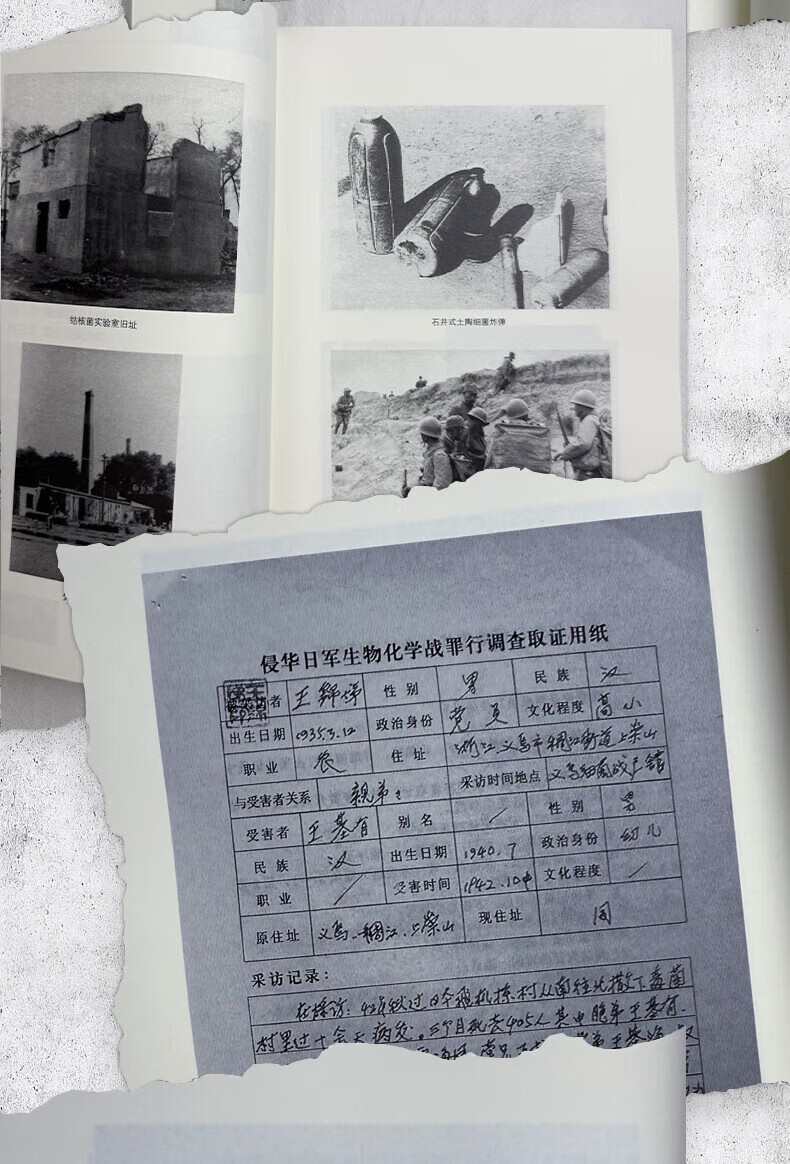 结核菌实验室旧址
石井式土陶细菌炸弹
侵华日军生物化学战罪行调查取证用纸
者 王 性别 男 民族 汉
出生日期 1935.3.12 政治身份 党员 文化程度 高小
职业 农 住址 浙江义乌市稠江街道上崇山
与受害者关系 亲弟 采访时间地点 义乌细菌战
受害者 王基有 别名 / 性别 男
民族 汉 出生日期 1940.7 政治身份 幼儿
职业 / 受害时间 1942.10 文化程度 /
原住址 义乌.稠江.上崇山 现住址 同
采访记录：
在採访：42年秋过日本飞机掠村从南往北撒下毒菌
村里过十余天病发。三个月死去405人其中胞弟王基有.